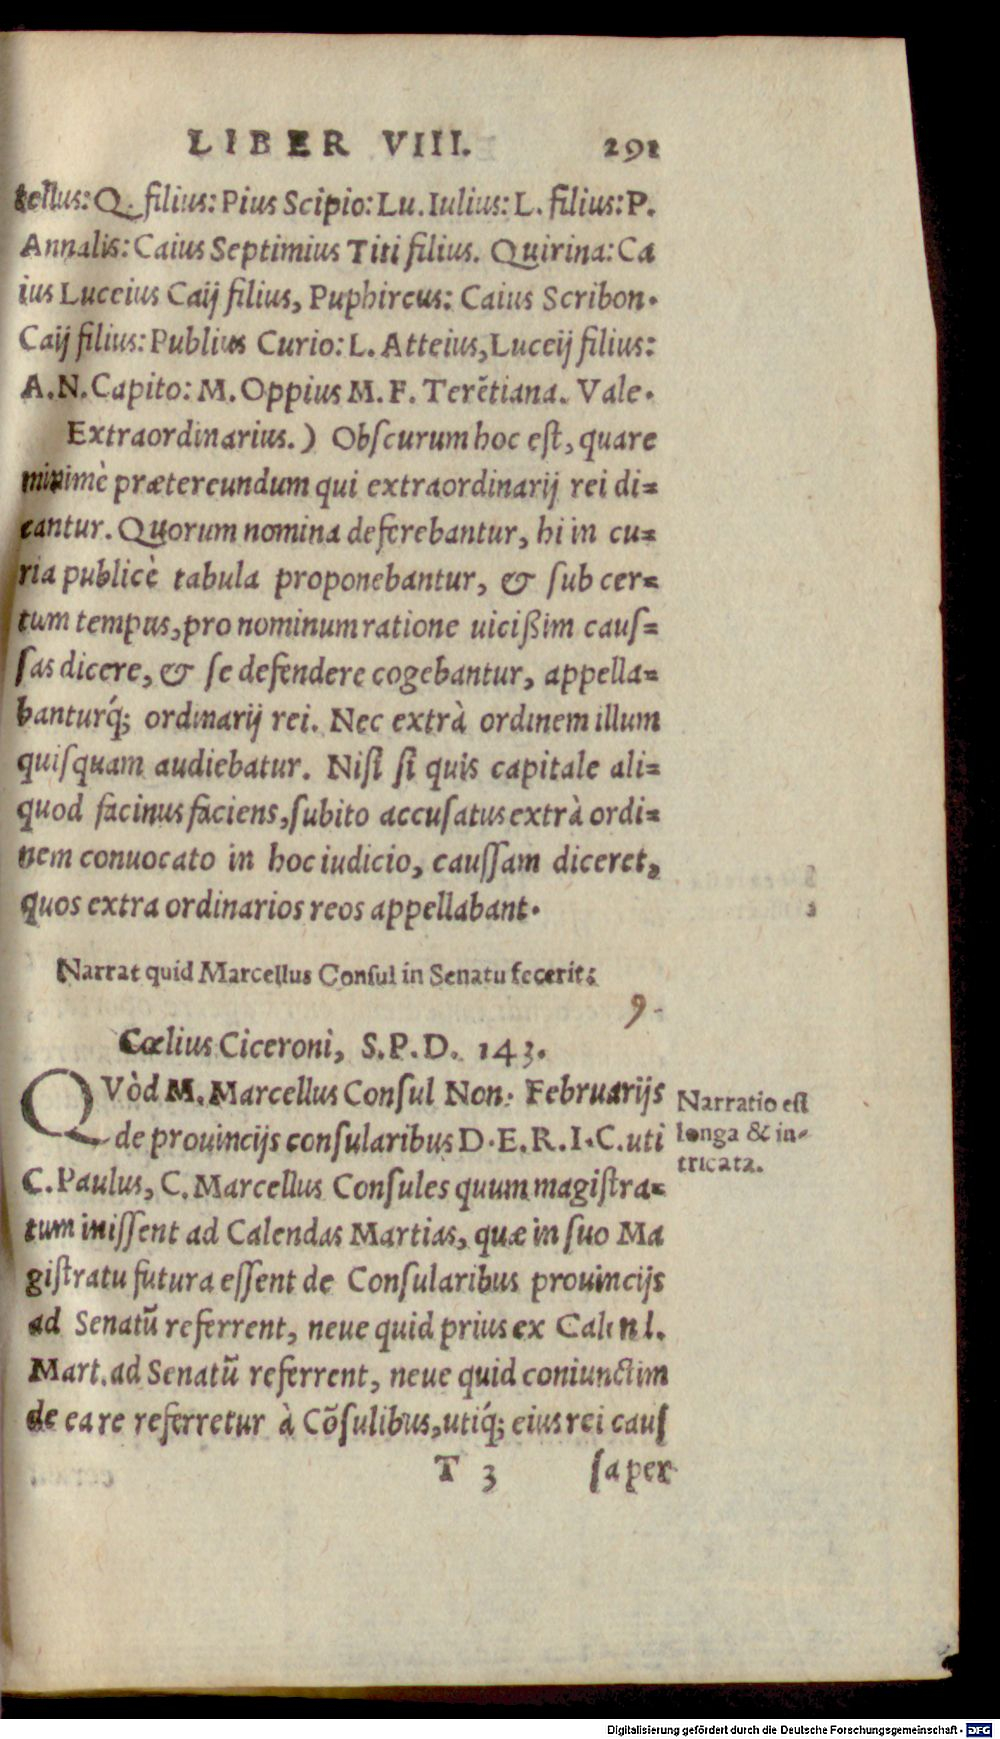 LIBER VIII. 291
tellus: Q. filius: Pius Scipio: Lu. Iulius: L. filius: P.
Annalis: Caius Septimius Titi filius. Quirina: Ca
ius Lucceius Caij filius, Puphircus: Caius Scribon.
Caij filius: Publius Curio: L. Atteius, Luceij filius:
A. N. Capito: M. Oppius M. F. Terẽtiana. Vale.
Extraordinarius.) Obſcurum hoc eſt, quare
minimè prætereundum qui extraordinarij rei di=
cantur. Quorum nomina deferebantur, hi in cu=
ria publicè tabula proponebantur, & ſub cer=
tum tempus, pro nominum ratione uicißim cauſ=
ſas dicere, & ſe defendere cogebantur, appella=
banturq́; ordinarij rei. Nec extrà ordinem illum
quiſquam audiebatur. Niſi ſi quis capitale ali=
quod facinus faciens, ſubito accuſatus extrà ordi=
nem conuocato in hoc iudicio, cauſſam diceret,
quos extra ordinarios reos appellabant.
Narrat quid Marcellus Conſul in Senatu fecerit:
9.
Cœlius Ciceroni, S. P. D. 143.
QVòd M. Marcellus Conſul Non. Februarijs
de prouincijs conſularibus D. E. R. I. C. uti
C. Paulus, C. Marcellus Conſules quum magiſtra=
tum iniſſent ad Calendas Martias, quæ in ſuo Ma
giſtratu futura eſſent de Conſularibus prouincijs
ad Senatũ referrent, neue quid prius ex Calend.
Mart. ad Senatũ referrent, neue quid coniunctim
de ea re referretur à Cõſulibus, utiq́; eius rei cauſ
T 3 ſa per
Narratio eſt
longa & in-
tricata.
Digitalisierung gefördert durch die Deutsche Forschungsgemeinschaft - DFG